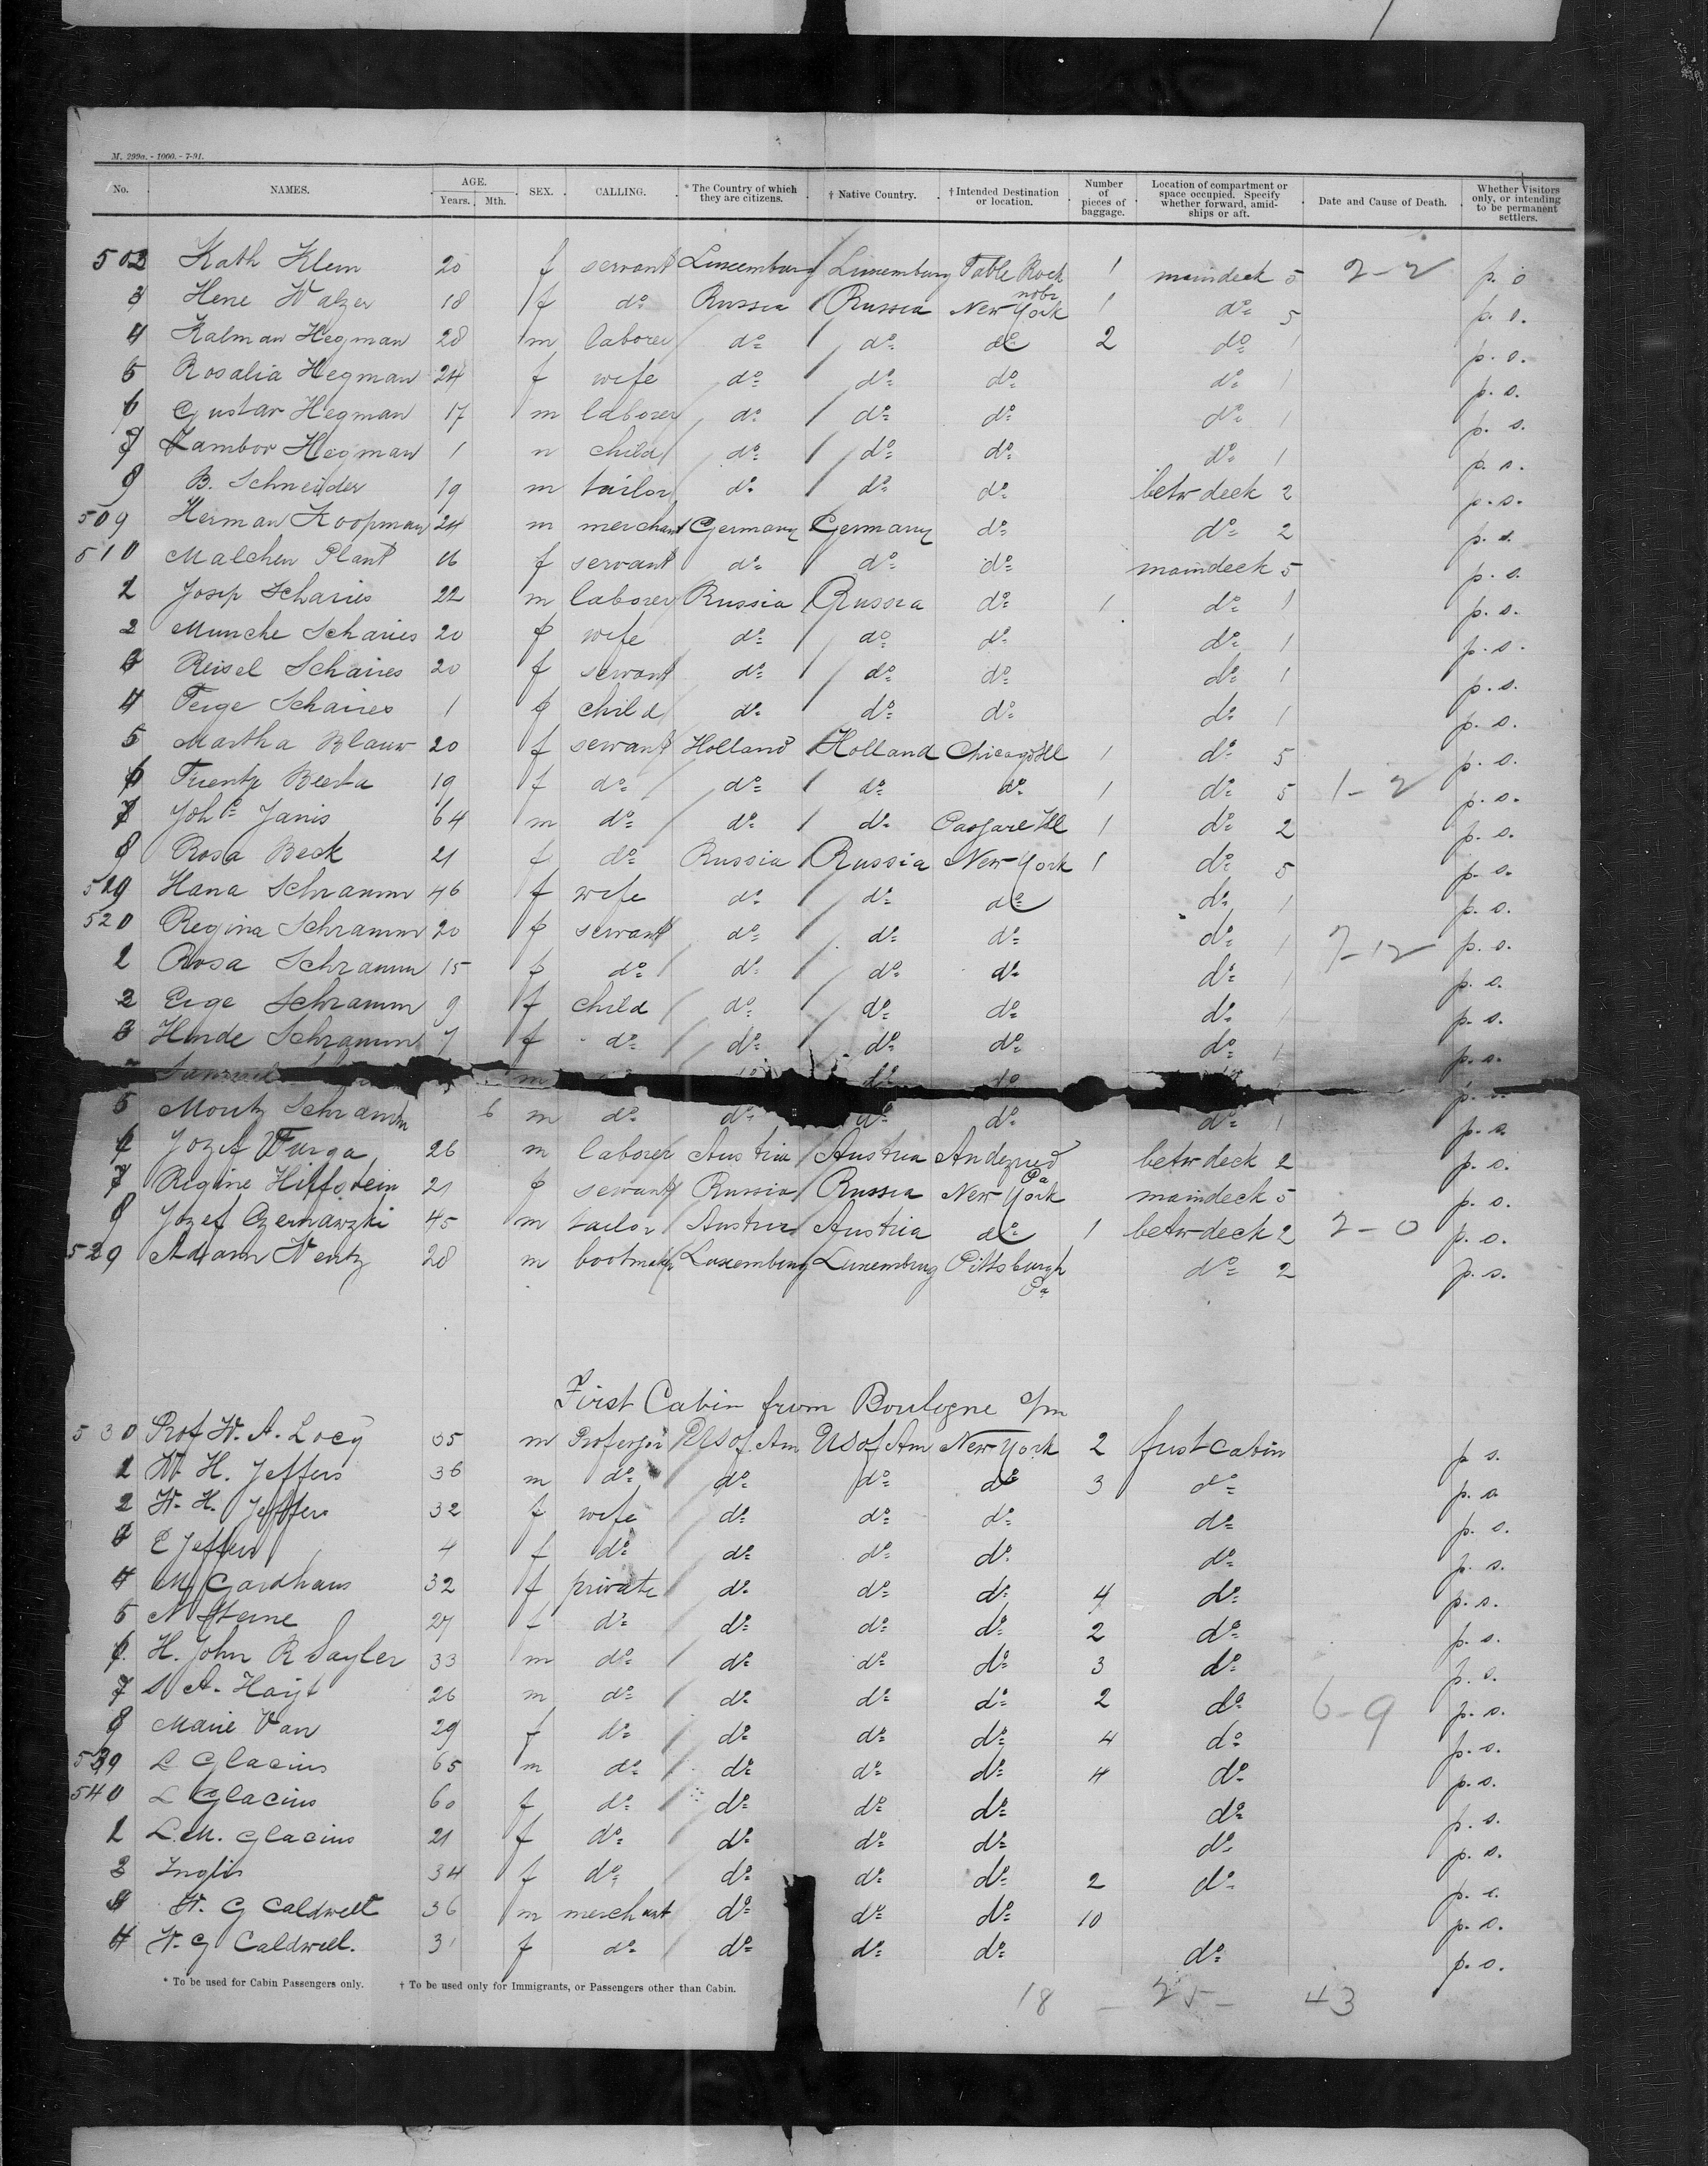 M. 299a. - 1000. - 7-91.
No. NAMES. AGE. Years. Mth. SEX. CALLING. * The Country of which they are citizens. † Native Country. † Intended Destination or location. Number of pieces of baggage. Location of compartment or space occupied. Specify whether forward, amidships or aft. Date and Cause of Death. Whether Visitors only, or intending to be permanent settlers.
502 Kath Klein 20 f servant Luxemburg Luxemburg Table Rock nebr 1 maindeck 5 2-2 p. s
3 Hene Walzer 18 f do Russia Russia New York 1 do 5 p. s.
4 Kalman Hegman 28 m laborer do do do 2 do 1 p. s.
5 Rosalia Hegman 24 f wife do do do do 1 p. s.
6 Gustav Hegman 17 m laborer do do do do 1 p. s.
7 Jambor Hegman 1 m child do do do do 1 p. s.
8 B. Schneider 19 m tailor do do do betw deck 2 p. s.
509 Herman Koopman 24 m merchant Germany Germany do do 2 p. s.
510 Malchen Plant 16 f servant do do do maindeck 5 p. s.
1 Josip Scharies 22 m laborer Russia Russia do 1 do 1 p. s.
2 Munche Scharies 20 f wife do do do do 1 p. s.
3 Reisel Schaires 20 f servant do do do do 1 p. s.
4 Feige Schaires 1 f child do do do do 1 p. s.
5 Martha Blauw 20 f servant Holland Holland Chicago Ill 1 do 5 p. s.
6 Trientje Beerta 19 f do do do do 1 do 5 1-2 p. s.
7 Joh Janis 64 m do do do Ill 1 do 2 p. s.
8 Rosa Beck 21 f do Russia Russia New York 1 do 5 p. s.
519 Hana Schramm 46 f wife do do do do 1 p. s.
520 Regina Schramm 20 f servant do do do do 1 7-12 p. s.
1 Rosa Schramm 15 f do do do do do 1 p. s.
2 Eige Schramm 9 f child do do do do 1 p. s.
3 Hinde Schramm 7 f do do do do do 1 p. s.
Samuel m do do
5 Moritz Schramm 6 m do do do do do 1 p. s.
6 Jozef Varga 26 m laborer Austria Austria Pa betw deck 2 p. s.
7 Regine Hilfstein 21 f servant Russia Russia New York maindeck 5 p. s.
8 Jozef Czernawzki 45 m tailor Austria Austria do 1 betw deck 2 2-0 p. s.
529 Adam Wentz 28 m bootmaker Luxemburg Luxemburg Pittsburgh Pa do 2 p. s.
First Cabin from Boulogne s/m
530 Prof W. A. Locy 35 m Professor US of Am US of Am New York 2 first cabin p. s.
1 W. H. Jeffers 36 m do do do do 3 do p. s
2 W. H. Jeffers 32 f wife do do do do p. s.
3 E Jeffers 4 f do do do do do p. s.
4 M Gardhaus 32 f private do do do 4 do p. s.
5 N Sterne 27 f do do do do 2 do p. s.
6 H. John R Sayler 33 m do do do do 3 do p. s.
7 S A. Hayt 26 m do do do do 2 do 6-9 p. s.
8 Marie Van 29 f do do do do 4 do p. s.
539 L Glacius 65 m do do do do 4 do p. s.
540 L Glacius 60 f do do do do do p. s.
1 L. M. Glacius 21 f do do do do do p. s.
2 Inglis 34 f do do do do 2 do p. s.
3 W. G Caldwell 36 m merchant do do do 10 p. s.
4 W. G Caldwell. 31 f do do do do do p. s.
* To be used for Cabin Passengers only. † To be used only for Immigrants, or Passengers other than Cabin.
18 - 25 - 43